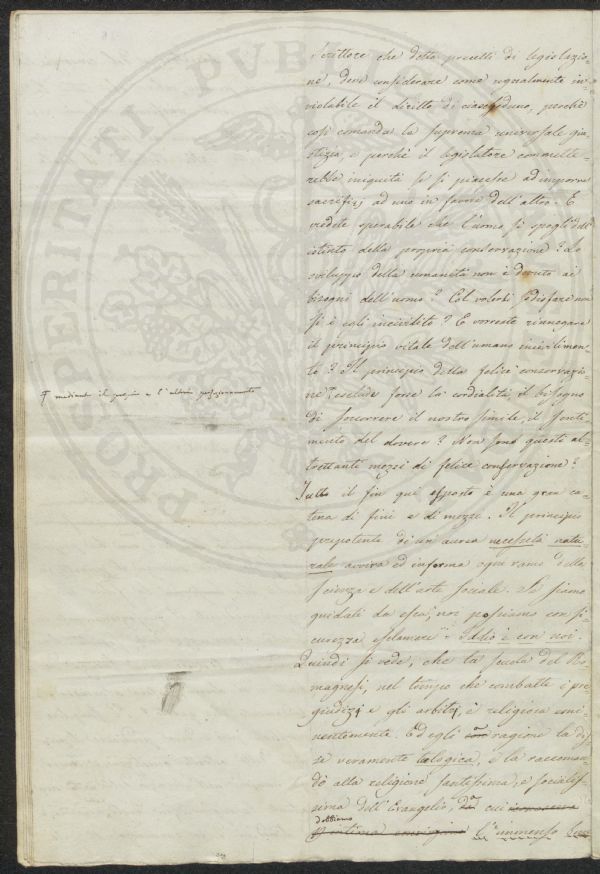 PROSPERITATI PUBLICAE
scrittore che detta precetti di legislazio-
ne, deve considerare come ugualmente in-
violabile il diritto di ciascheduno, perché
così comanda la suprema universale giu-
stizia, e perché il legislatore commette-
rebbe iniquità se si piacesse ad imporre
sacrifizj ad uno in favore dell'altro. E
credete sperabile che l'uomo si spogli dell'
istinto della propria conservazione? Lo
sviluppo della umanità non è dovuto ai
bisogni dell'uomo? Col volerli sodisfare non
si è egli incivilito? E vorreste rinnegare
il principio vitale dell'umano incivilimen-
to? Il principio della felice conservazio-
ne esclude forse la cordialità, il bisogno
mediante il proprio e l'altrui perfezionamento
di soccorrere il nostro simile, il senti-
mento del dovere? Non sono questi al-
trettanti mezzi di felice conservazione?
Tutto il fin qui esposto è una gran ca-
tena di fini e di mezzi. Il principio
prepotente di un'aurea necessità natu-
rale avviva ed informa ogni ramo della
scienza e dell'arte sociale. Se siamo
guidati da essa, noi possiamo con si-
curezza esclamare: Iddio è con noi.
Quindi si vede, che la scuola del Ro-
magnosi, nel tempo che combatte i pre-
giudizj e gli arbitrj, è religiosa emi-
nentemente. Ed egli con ragione la dis-
se veramente teologica, e la raccoman-
dò alla religione santissima, e socialis-
sima dell'Evangelio, cui
dobbiamo
l'immenso